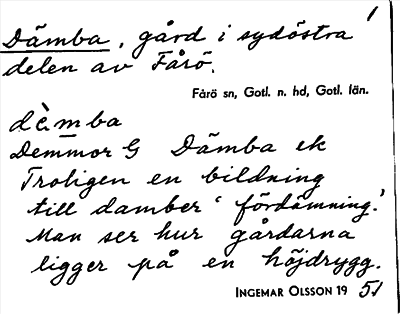 1
Dämba, gård i sydöstra
delen av Fårö.
Fårö sn, Gotl. n. hd, Gotl. län.
dèmba
Demmor G Dämba ek
Troligen en bildning
till damber 'fördämning.'
Man ser hur gårdarna
ligger på en höjdrygg.
INGEMAR OLSSON 19 51